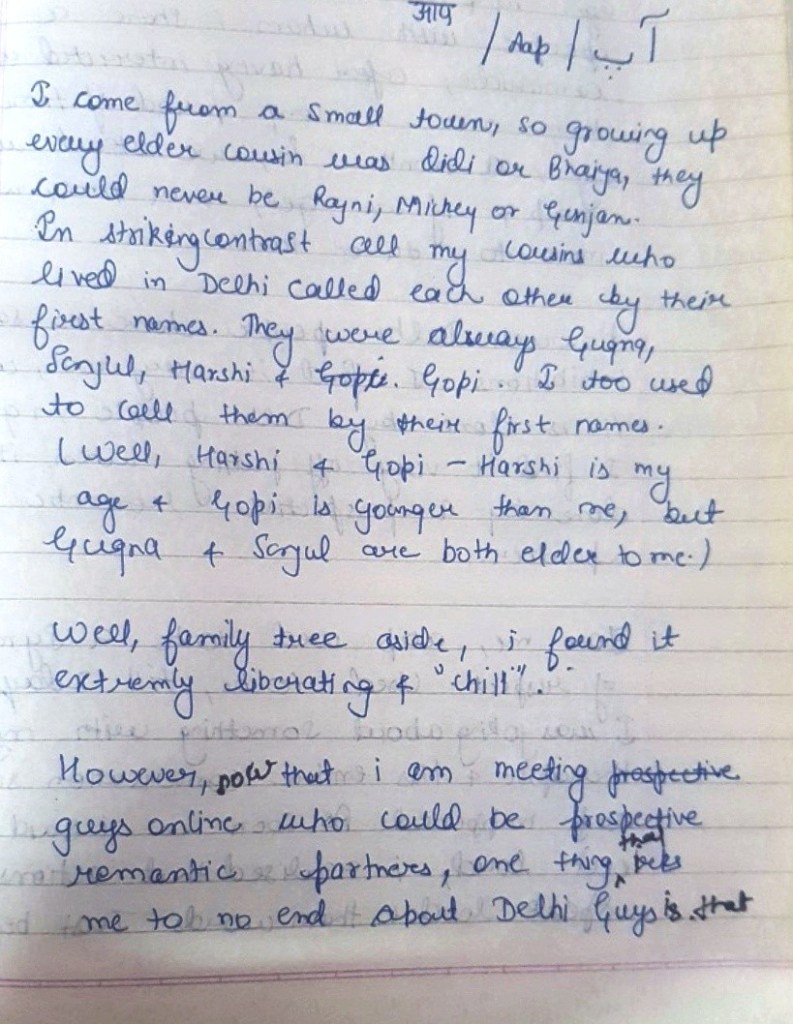 आप / Aap / آپ
I come from a small town, so growing up
every elder cousin was didi or Bhaiya, they
could never be Rajni, Mickey or Gunjan.
In striking contrast all my cousins who
lived in Delhi called each other by their
first names. They were always Gugna,
Sanjul, Harshi & Gopi. Gopi. I too used
to call them by their first names.
(Well, Harshi & Gopi - Harshi is my
age & Gopi is younger than me, but
Gugna & Sanjul are both elder to me.)
Well, family tree aside, i found it
extremly liberating & "chill".
However, now that i am meeting prospective
guys online who could be prospective
romantic partners, one thing that
me to no end about Delhi Guys is that